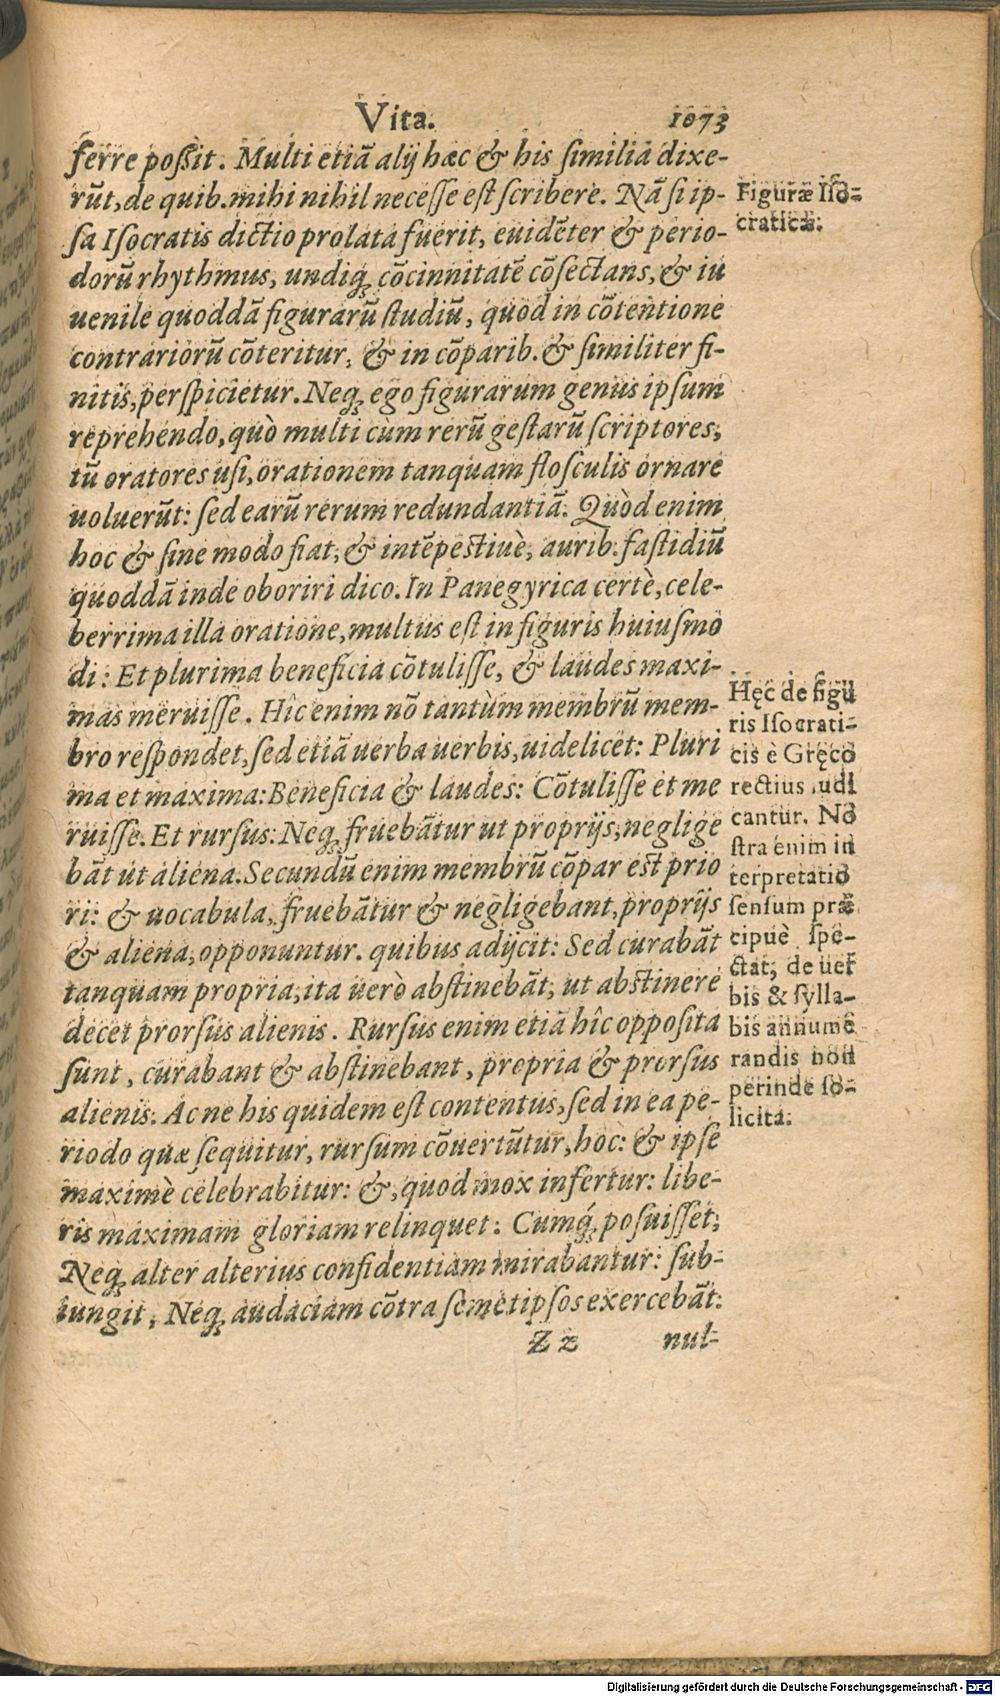 Vita. 1073
ferre possit. Multi etiā alij hæc & his similia dixe-
rūt, de quib. mihi nihil necesse est scribere. Nā si ip-
sa Isocratis dictio prolata fuerit, euidēter & perio-
dorū rhythmus, undiq; cōcinnitatē cōsectans, & iu
uenile quoddā figurarū studiū, quod in cōtentione
contrariorū cōteritur, & in cōparib. & similiter fi-
nitis, perspicietur. Neq; ego figurarum genus ipsum
reprehendo, quò multi cùm rerū gestarū scriptores,
tū oratores usi, orationem tanquam flosculis ornare
uoluerūt: sed earū rerum redundantiā. Quòd enim
hoc & sine modo fiat, & intēpestiuè, aurib. fastidiū
quoddā inde oboriri dico. In Panegyrica certè, cele-
berrima illa oratione, multus est in figuris huiusmo
di: Et plurima beneficia cōtulisse, & laudes maxi-
mas meruisse. Hîc enim nō tantùm membrū mem-
bro respondet, sed etiā uerba uerbis, uidelicet: Pluri
ma et maxima: Beneficia & laudes: Cōtulisse et me
ruisse. Et rursus: Neq; fruebātur ut proprijs, neglige
bāt ut aliena. Secundū enim membrū cōpar est prio
ri: & uocabula, fruebātur & negligebant, proprijs
& aliena, opponuntur. quibus adijcit: Sed curabāt
tanquam propria, ita uerò abstinebāt, ut abstinere
decet prorsus alienis. Rursus enim etiā hîc opposita
sunt, curabant & abstinebant, propria & prorsus
alienis. Ac ne his quidem est contentus, sed in ea pe-
riodo quæ sequitur, rursum cōuertūtur, hoc: & ipse
maximè celebrabitur: &, quod mox infertur: libe-
ris maximam gloriam relinquet. Cumq́; posuisset,
Neq; alter alterius confidentiam mirabantur: sub-
iungit, Neq; audaciam cōtra semetipsos exercebāt:
Zz nul-
Figuræ Iso-
craticæ.
Hęc de figu
ris Isocrati-
cis è Gręco
rectius iudi
cantur. No
stra enim in
terpretatio
sensum præ
cipuè spe-
ctat, de uer
bis & sylla-
bis annume
randis non
perinde so-
licita.
Digitalisierung gefördert durch die Deutsche Forschungsgemeinschaft - DFG